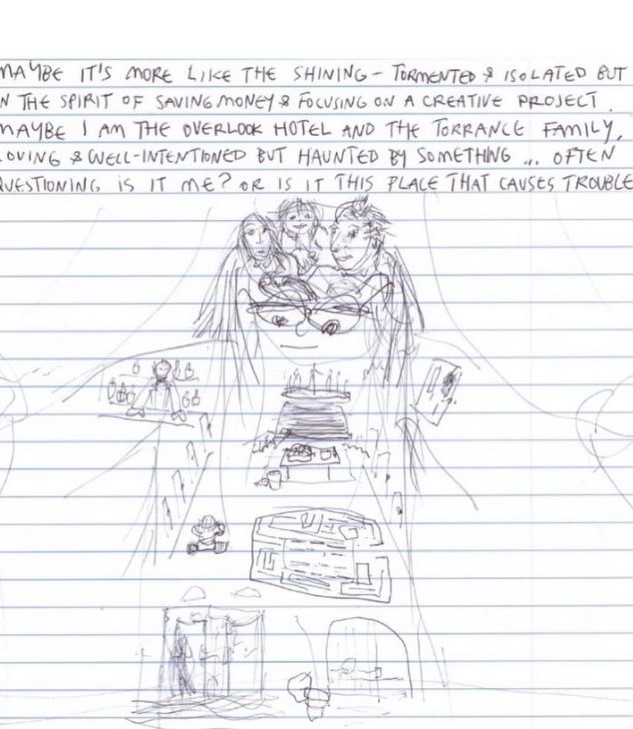 MAYBE IT'S MORE LIKE THE SHINING - TORMENTED & ISOLATED BUT
N THE SPIRIT OF SAVING MONEY & FOCUSING ON A CREATIVE PROJECT.
MAYBE I AM THE OVERLOOK HOTEL AND THE TORRANCE FAMILY,
OVING & WELL-INTENTIONED BUT HAUNTED BY SOMETHING ... OFTEN
UESTIONING IS IT ME? OR IS IT THIS PLACE THAT CAUSES TROUBLE